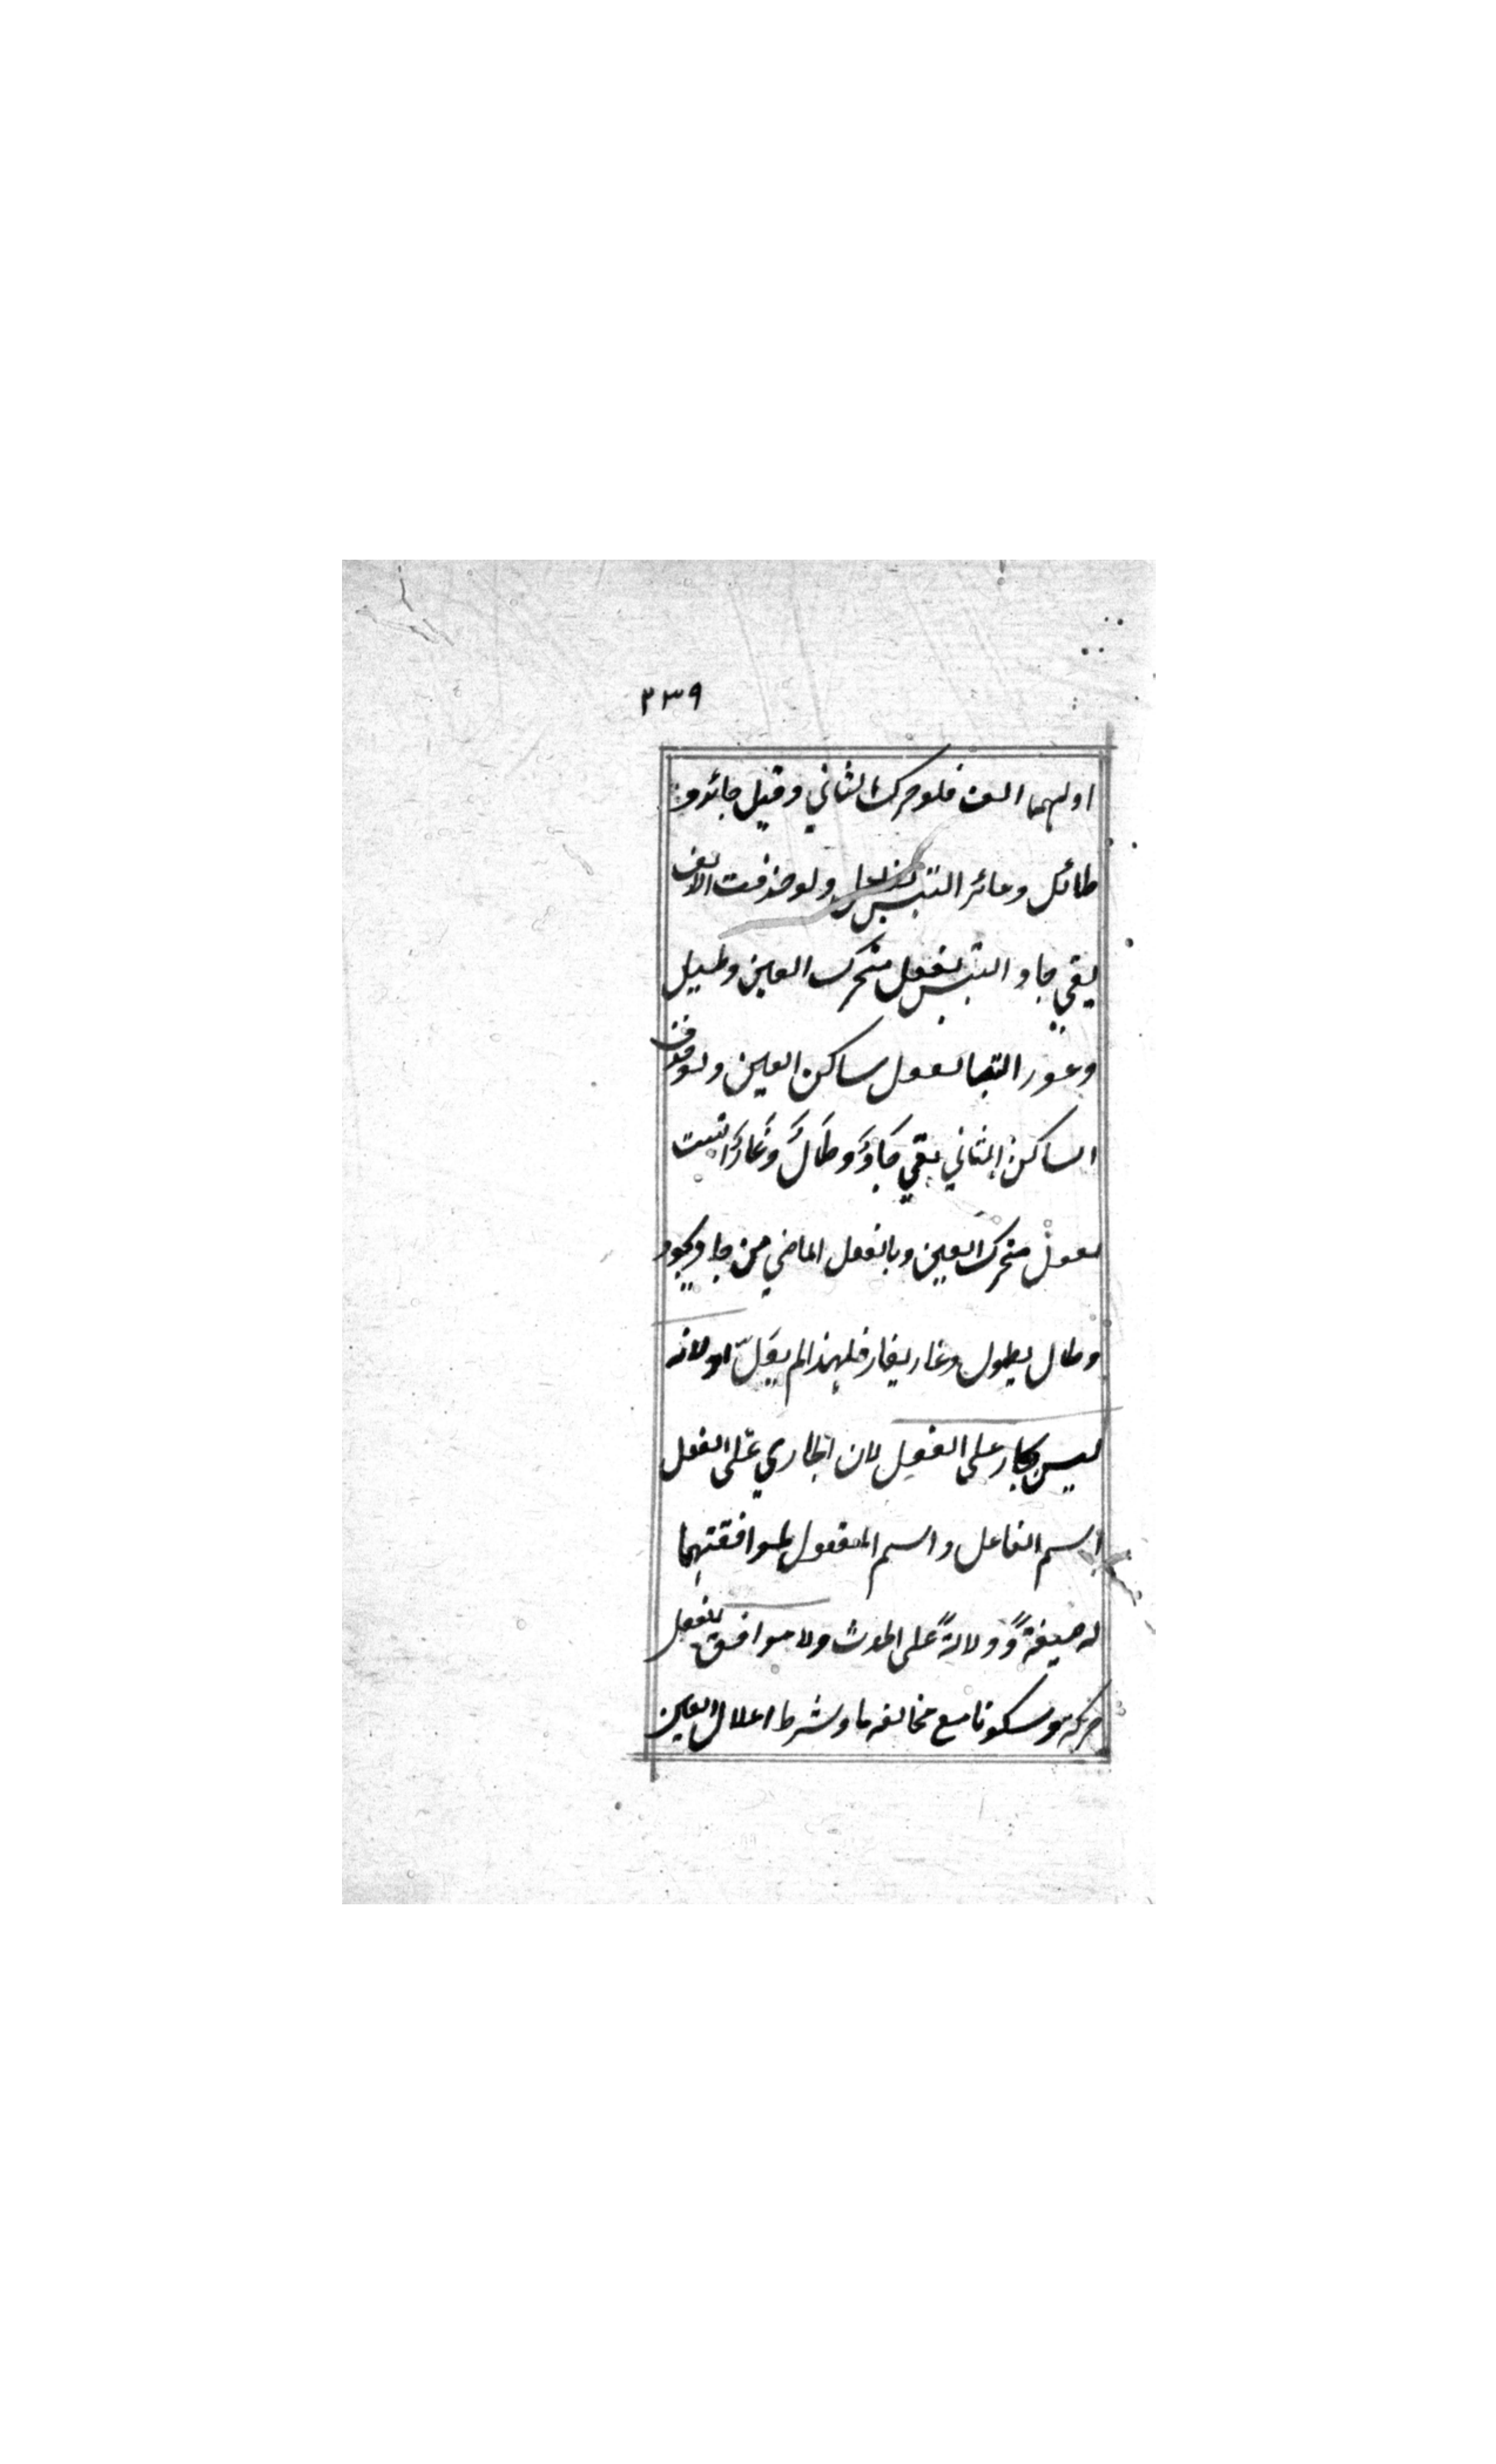 ٢٣٩
اولهما الف فلو حرك الثاني وقيل جائد و
طائل وعائر التبس بفاعل ولو حذفت الالف
بقي جاو التبس بفعل متحرك العين وطييل
وعور التبسا بفعل ساكن العين ولو حذف
الساكن الثاني بقي جَادَ وَطَالَ وَعَارَ التبست
بفعل متحرك العين وبالفعل الماضي من جاد يجود
وطال يطول وغار يغار فلهذا لم يعلّ او لانه
ليس بجار على الفعل لان الجاري على الفعل
اسم الفاعل واسم المفعول لموافقتهما
له صيغةً ودلالةً على الحدث ولا موافق للفعل
حركة وسكونا مع مخالفه ما وشرط اعلال العين